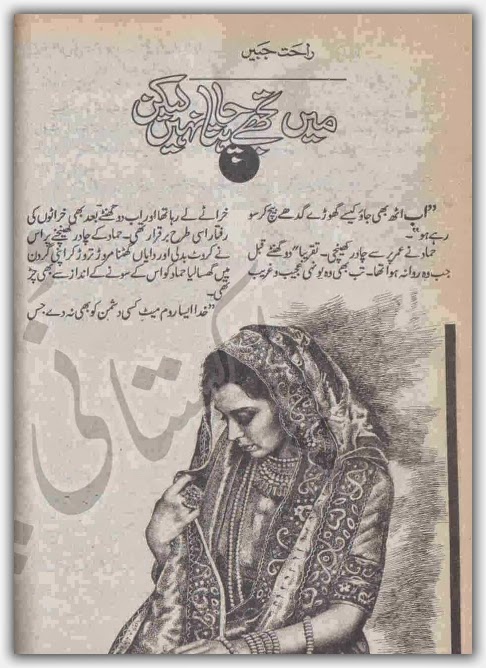 راحت جبیں
میں تجھے جانا نہیں لیکن
”اب اٹھ بھی جاؤ کیسے گھوڑے گدھے بیچ کر سو
رہے ہو“۔
حماد نے عمر پر سے چادر کھینچی۔ تقریباً ”دو گھنٹے قبل
جب وہ روانہ ہوا تھا۔ تب بھی وہ یونہی عجیب و غریب
خراٹے لے رہا تھا اور اب دو گھنٹے بعد بھی خراٹوں کی
رفتار اسی طرح برقرار تھی۔ حماد کے چادر کھینچنے پر اس
نے کروٹ بدلی اور دایاں گھٹنا موڑ تروڑ کر اپنی گردن
میں گھسا لیا حماد کو اس کے سونے کے انداز سے بھی چڑ
تھی۔
”خدا ایسا روم میٹ کسی دشمن کو بھی نہ دے جس
پاکستانی